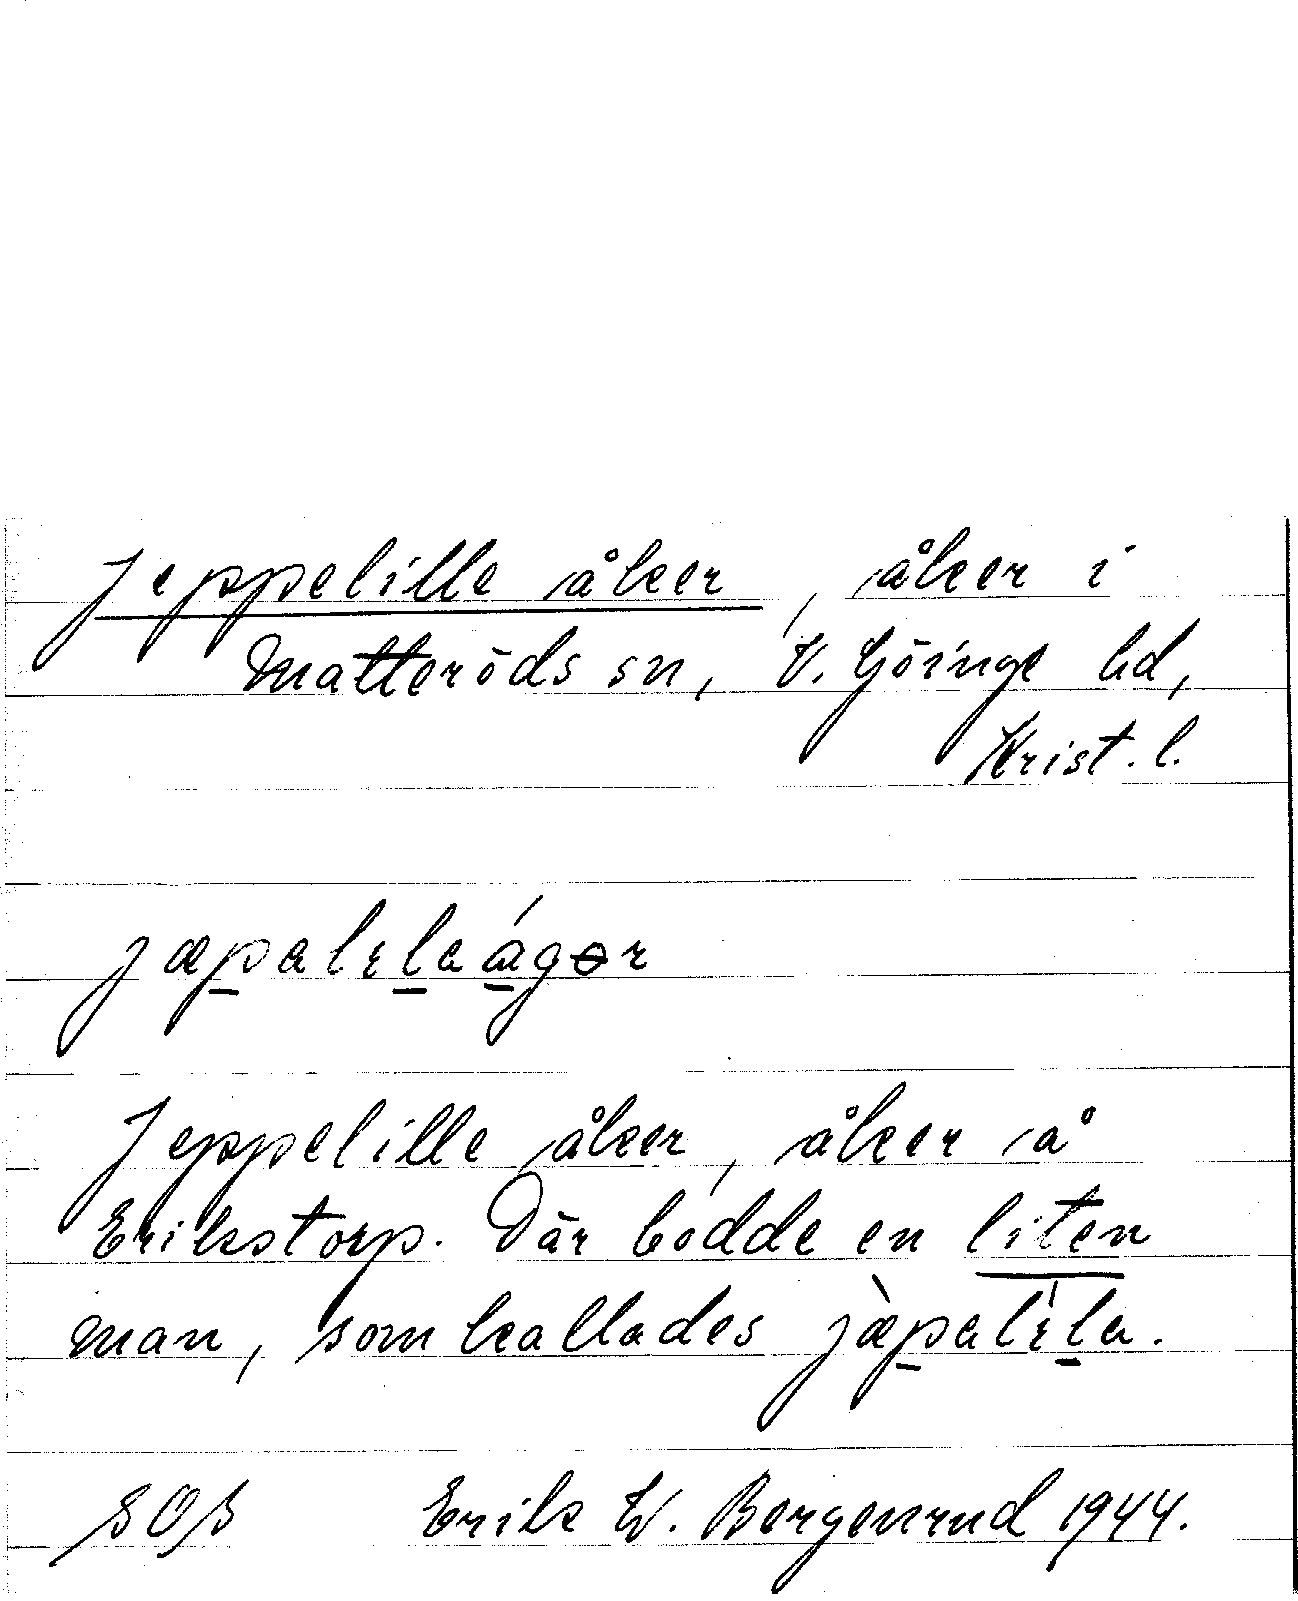 Jeppelille åker, åker i
Matteröds sn, V. Göinge hd,
Krist. l.
jæpalɛlaágɵr
Jeppelille åker, åker å
Erikstorp. Där bodde en liten
man, som kallades jæ̀palɛ̀la.
SOS Erik W. Bergenrud 1944.